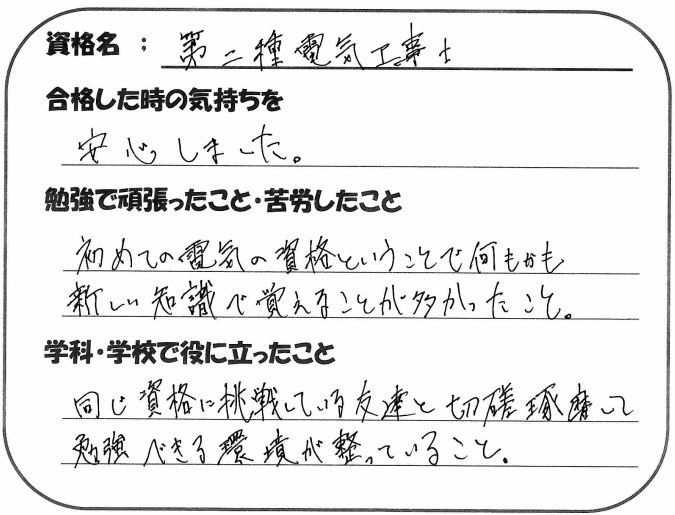 資格名 : 第二種電気工事士
合格した時の気持ちを
安心しました。
勉強で頑張ったこと・苦労したこと
初めての電気の資格ということで何もかも
新しい知識で覚えることが多かったこと。
学科・学校で役に立ったこと
同じ資格に挑戦している友達と切磋琢磨して
勉強できる環境が整っていること。